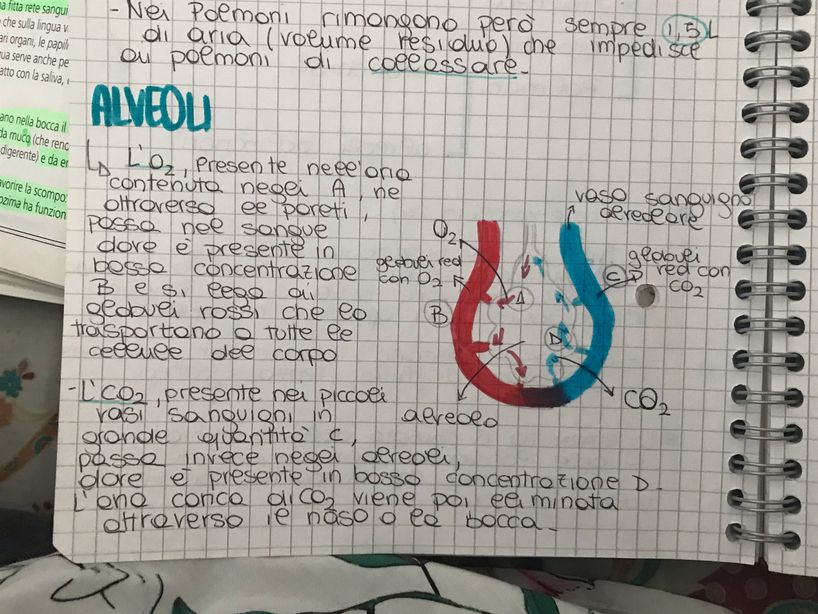 a fitta rete sangui
che sulla lingua v
ari organi, le papill
ua serve anche pe
atto con la saliva,
ano nella bocca il
da muco (che reno
digerente) e da er
avorire la scompo
ozima ha funzion
- Nei Polmoni rimangono però sempre 1,5 L
di aria (volume residuo) che impedisce
ai polmoni di collassare.
ALVEOLI
↳ L'O2, presente nell'aria
contenuta negli A, ne
attraverso le pareti,
passa nel sangue
dove è presente in
bassa concentrazione
B e si lega ai
globuli rossi che lo
trasportano a tutte le
cellule del corpo
- L'CO2, presente nei piccoli
vasi sanguigni in
grande quantità C,
passa invece negli alveoli,
dove è presente in bassa concentrazione D.
L'aria carica di CO2 viene poi eliminata
attraverso il naso o la bocca.
vaso sanguigno
alveolare
O2
globuli red
con O2
B
A
C
D
globuli
red con
CO2
alveolo
CO2